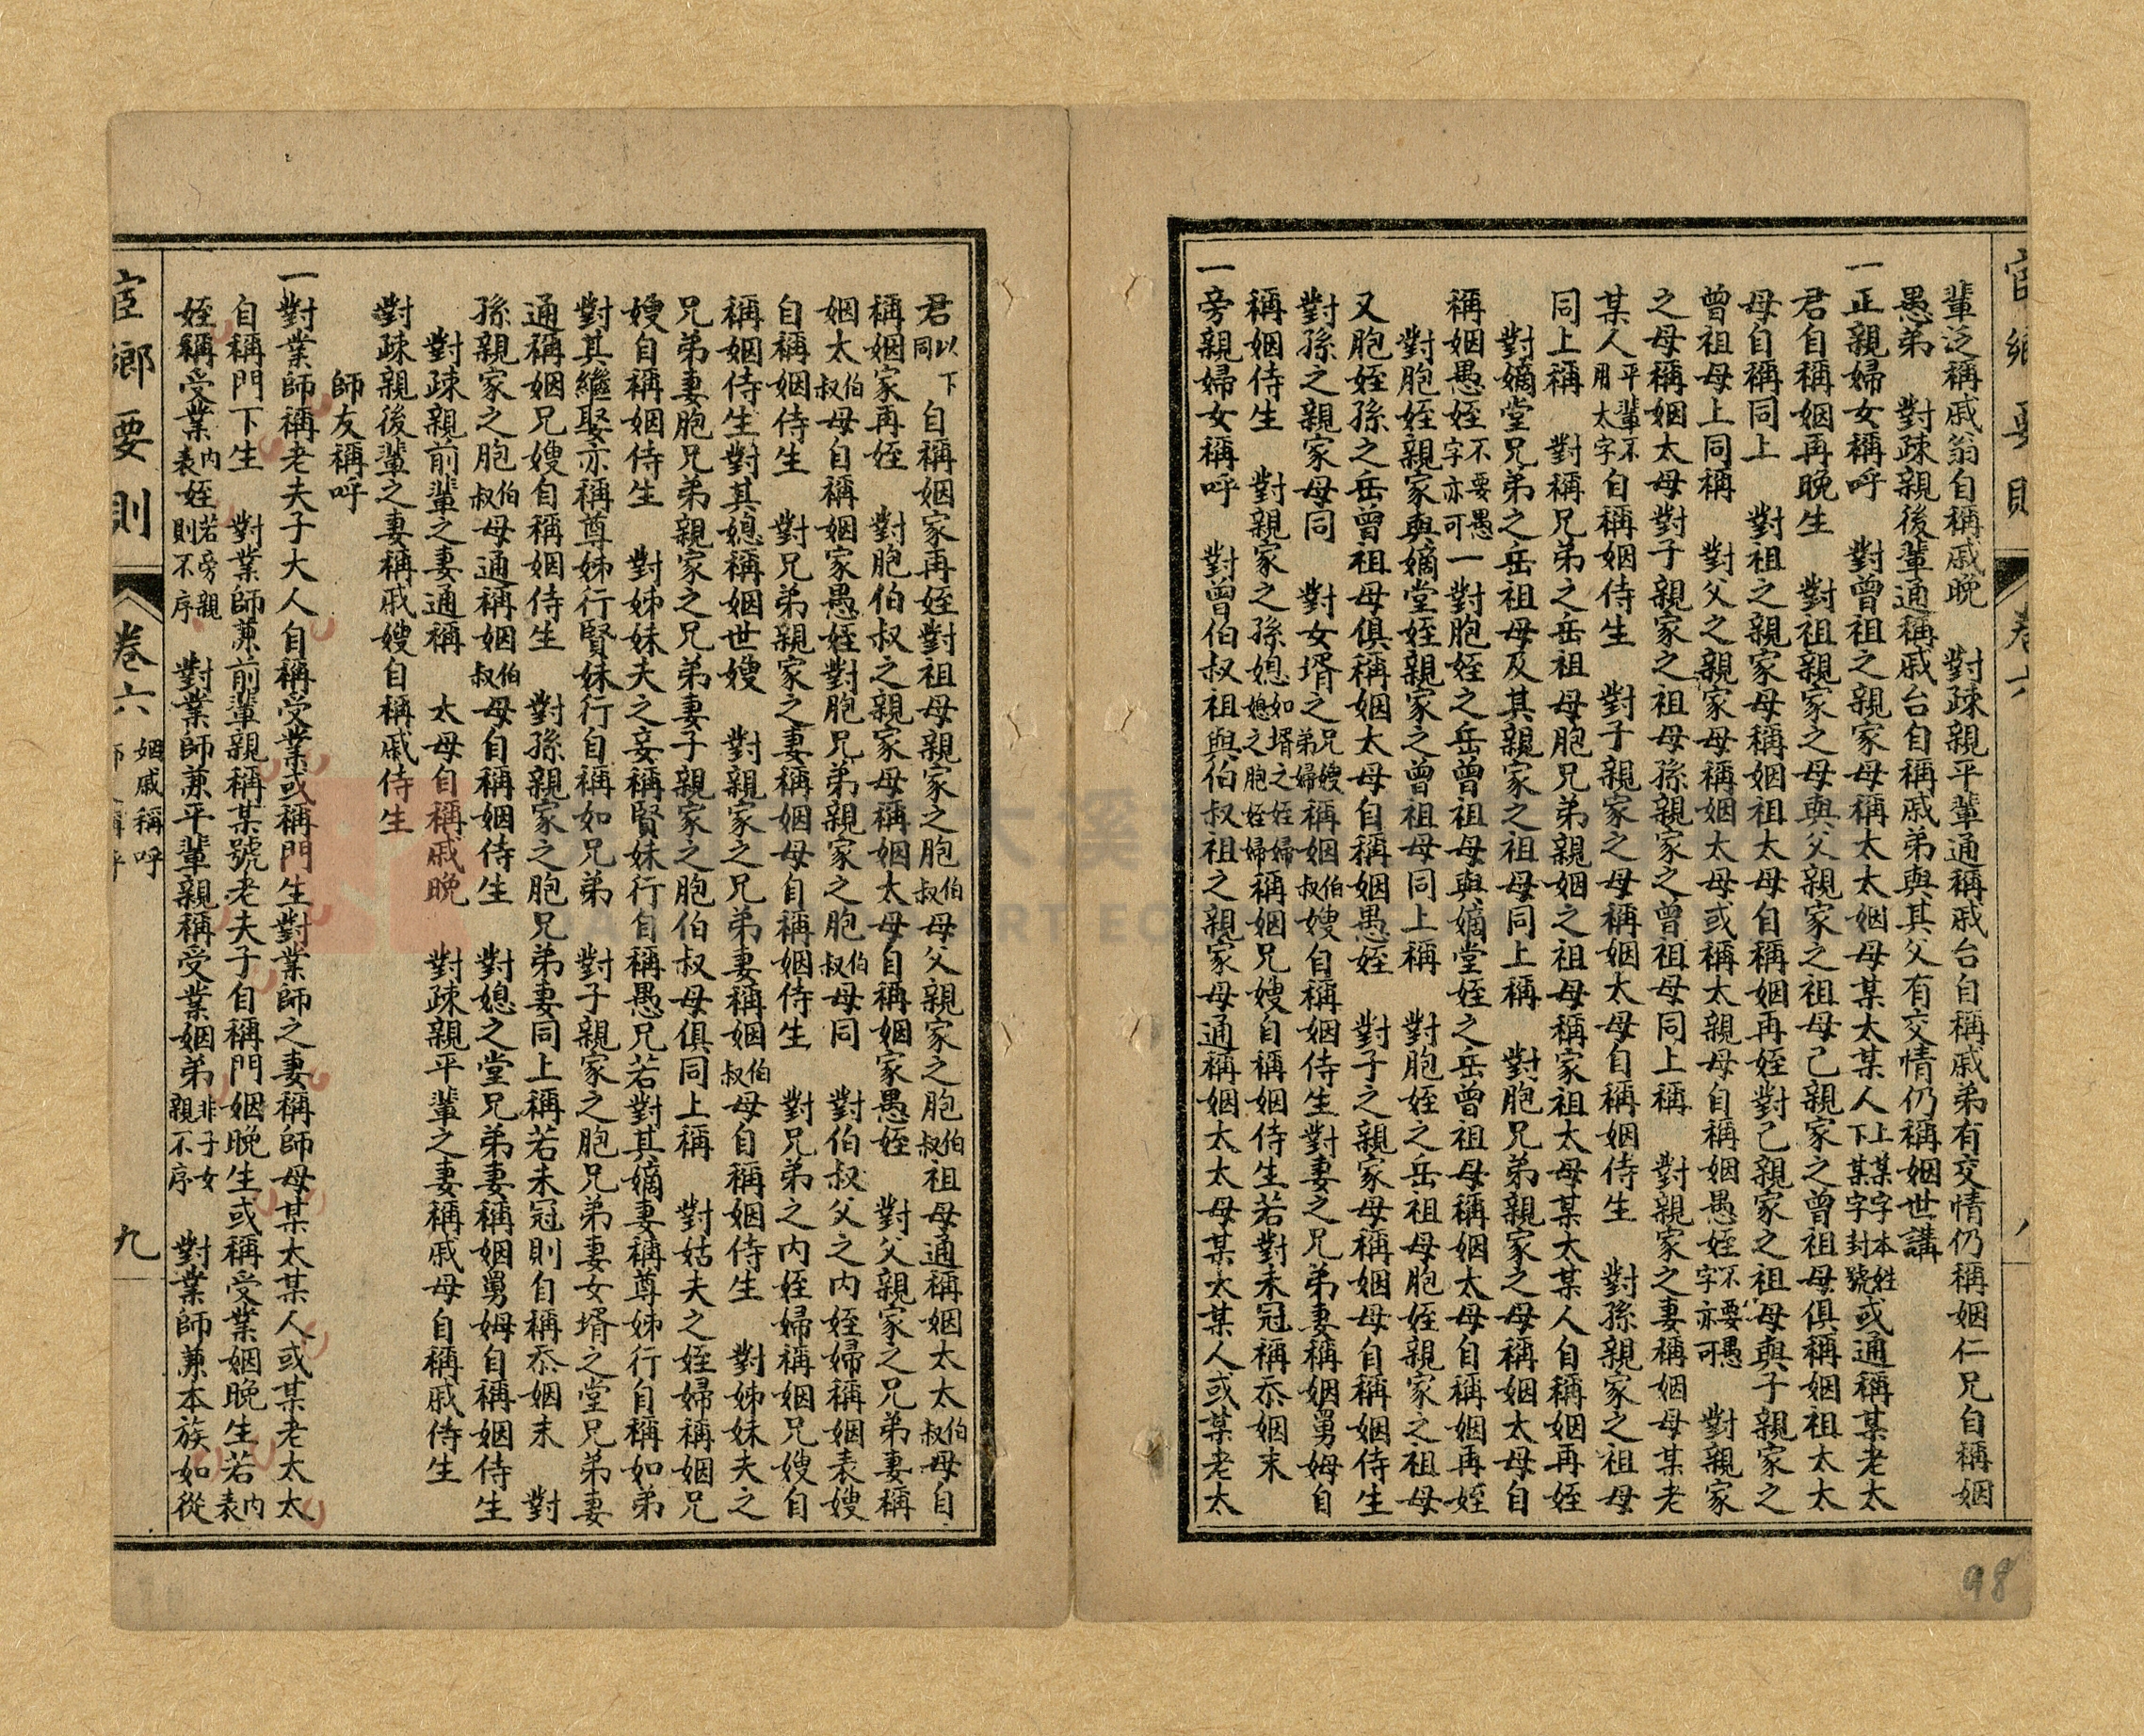 輩泛稱戚翁自稱戚晚　對疎親平輩通稱戚台自稱戚弟有交情仍稱姻仁兄自稱姻
愚弟　對疎親後輩通稱戚台自稱戚弟與其父有交情仍稱姻世講
一正親婦女稱呼　對曾祖之親家母稱太太姻母某太某人上某字本姓下某字封號或通稱某老太
君自稱姻再晚生　對祖親家之母與父親家之祖母己親家之曾祖母俱稱姻祖太太
母自稱同上　對祖之親家母稱姻祖太母自稱姻再姪對己親家之祖母與子親家之
曾祖母上同稱　對父之親家母稱姻太母或稱太親母自稱姻愚姪不要愚字亦可　對親家
之母稱姻太母對子親家之祖母孫親家之曾祖母同上稱　對親家之妻稱姻母某老
某人平輩不用太字自稱姻侍生　對子親家之母稱姻太母自稱姻侍生　對孫親家之祖母
同上稱　對稱兄弟之岳祖母胞兄弟親姻之祖母稱家祖太母某太某人自稱姻再姪
對嫡堂兄弟之岳祖母及其親家之祖母同上稱　對胞兄弟親家之母稱姻太母自
稱姻愚姪不要愚字亦可一對胞姪之岳曾祖母與嫡堂姪之岳曾祖母稱姻太母自稱姻再姪
對胞姪親家與嫡堂姪親家之曾祖母同上稱　對胞姪之岳祖母胞姪親家之祖母
又胞姪孫之岳曾祖母俱稱姻太母自稱姻愚姪　對子之親家母稱姻母自稱姻侍生
對孫之親家母同　對女壻之兄嫂弟婦稱姻伯叔嫂自稱姻侍生對妻之兄弟妻稱姻舅姆自
稱姻侍生　對親家之孫媳如壻之姪婦媳之胞姪婦稱姻兄嫂自稱姻侍生若對未冠稱忝姻末
一旁親婦女稱呼　對曾伯叔祖與伯叔祖之親家母通稱姻太太母某太某人或某老太
君以下同自稱姻家再姪對祖母親家之胞伯叔母父親家之胞伯叔祖母通稱姻太太伯叔母自
稱姻家再姪　對胞伯叔之親家母稱姻太母自稱姻家愚姪　對父親家之兄弟妻稱
姻太伯叔母自稱姻家愚姪對胞兄弟親家之胞伯叔母同　對伯叔父之內姪婦稱姻表嫂
自稱姻侍生　對兄弟親家之妻稱姻母自稱姻侍生　對兄弟之內姪婦稱姻兄嫂自
稱姻侍生對其媳稱姻世嫂　對親家之兄弟妻稱姻伯叔母自稱姻侍生　對姊妹夫之
兄弟妻胞兄弟親家之兄弟妻子親家之胞伯叔母俱同上稱　對姑夫之姪婦稱姻兄
嫂自稱姻侍生　對姊妹夫之妾稱賢妹行自稱愚兄若對其嫡妻稱尊姊行自稱如弟
對其繼娶亦稱尊姊行賢妹行自稱如兄弟　對子親家之胞兄弟妻女壻之堂兄弟妻
通稱姻兄嫂自稱姻侍生　對孫親家之胞兄弟妻同上稱若未冠則自稱忝姻末　對
孫親家之胞伯叔母通稱姻伯叔母自稱姻侍生　對媳之堂兄弟妻稱姻舅姆自稱姻侍生
對疎親前輩之妻通稱　太母自稱戚晚　對疎親平輩之妻稱戚母自稱戚侍生
對疎親後輩之妻稱戚嫂自稱戚侍生
師友稱呼
一對業師稱老夫子大人自稱受業或稱門生對業師之妻稱師母某太某人或某老太太
自稱門下生　對業師兼前輩親稱某號老夫子自稱門姻晚生或稱受業姻晚生若內表
姪稱受業內表姪若旁親則不序　對業師兼平輩親稱受業姻弟非子女親不序　對業師兼本族如從
宦鄉要則　卷六　姻戚稱呼　九